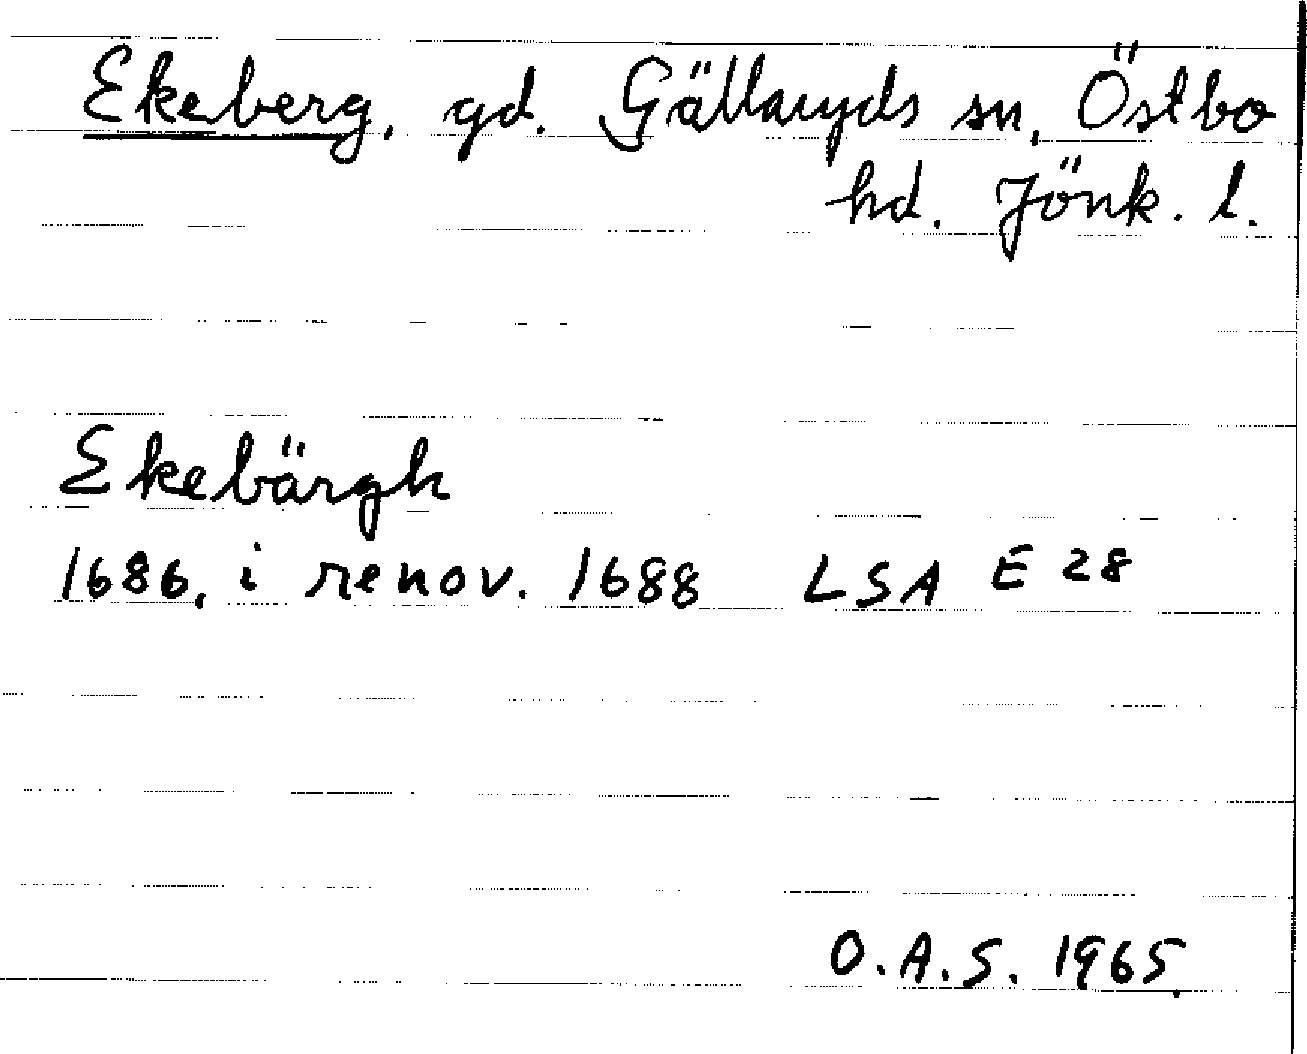 Ekeberg, gd. Gällaryds sn, Östbo
hd. Jönk. l.
Ekebärgh
1686, i renov. 1688 LSA E 28
O.A.S. 1965.